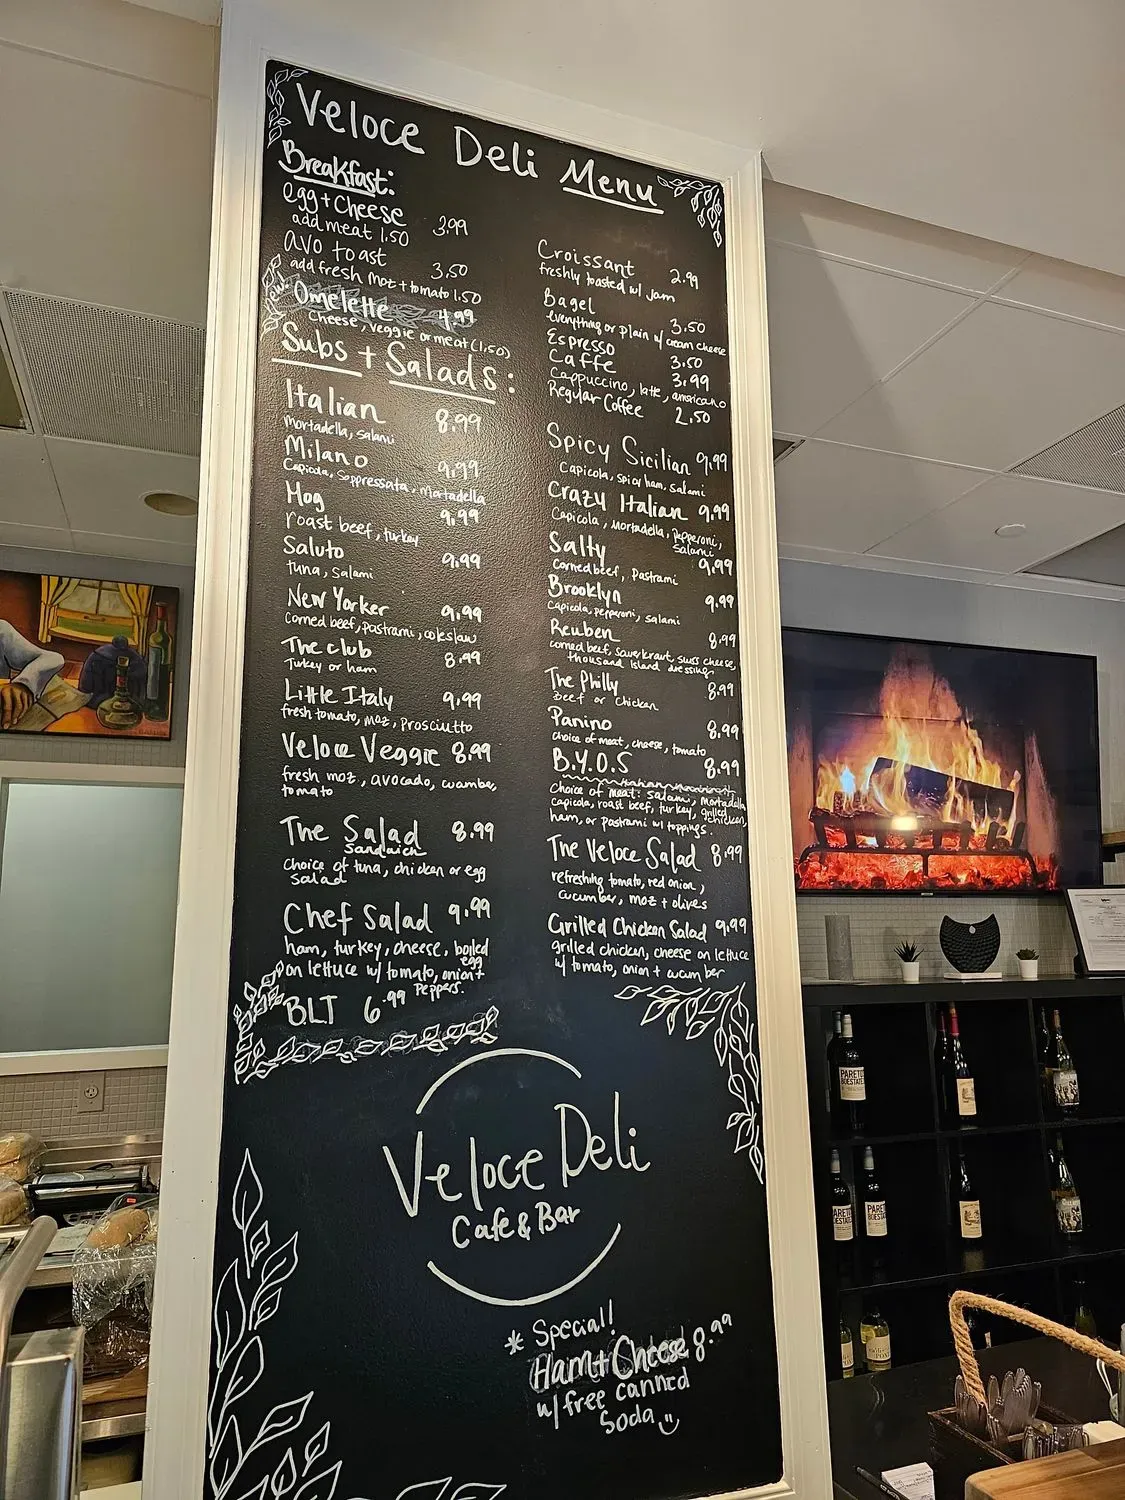 Veloce Deli Menu
Breakfast:
egg + Cheese 3.99
add meat 1.50
avo toast 3.50
add fresh moz + tomato 1.50
new
Omelette 4.99
Cheese, veggie or meat (1.50)
Croissant 2.99
freshly toasted w/ jam
Bagel 3.50
everything or plain w/ cream cheese
Espresso 3.50
Caffe 3.99
Cappuccino, latte, americano
Regular Coffee 2.50
Subs + Salads:
Italian 8.99
mortadella, salami
Milano 9.99
Capicola, Soppressata, mortadella
Hog 9.99
roast beef, turkey
Saluto 9.99
tuna, salami
New Yorker 9.99
Corned beef, pastrami, coleslaw
The club 8.99
Turkey or ham
Little Italy 9.99
fresh tomato, moz, prosciutto
Veloce Veggie 8.99
fresh moz, avocado, cucumber,
tomato
The Salad 8.99
Sandwich
choice of tuna, chicken or egg
salad
Chef Salad 9.99
ham, turkey, cheese, boiled
egg
on lettuce w/ tomato, onion +
Peppers.
BLT 6.99
Spicy Sicilian 9.99
Capicola, spicy ham, salami
Crazy Italian 9.99
Capicola, mortadella, pepperoni,
salami
Salty 9.99
corned beef, pastrami
Brooklyn 9.99
Capicola, pepperoni, salami
Reuben 8.99
corned beef, sauerkraut, swiss cheese,
thousand island dressing
The Philly 8.99
Beef or chicken
Panino 8.99
choice of meat, cheese, tomato
B.Y.O.S 8.99
Choice of meat: salami, mortadella,
capicola, roast beef, turkey, grilled chicken,
ham, or pastrami w/ toppings.
The Veloce Salad 8.99
refreshing tomato, red onion,
cucumber, moz + olives
Grilled Chicken Salad 9.99
grilled chicken, cheese on lettuce
w/ tomato, onion + cucumber
Veloce Deli
Cafe & Bar
* Special!
Ham + Cheese 8.99
w/ free canned
Soda
PARETO
BOESTATE
PARETO
BOESTATE